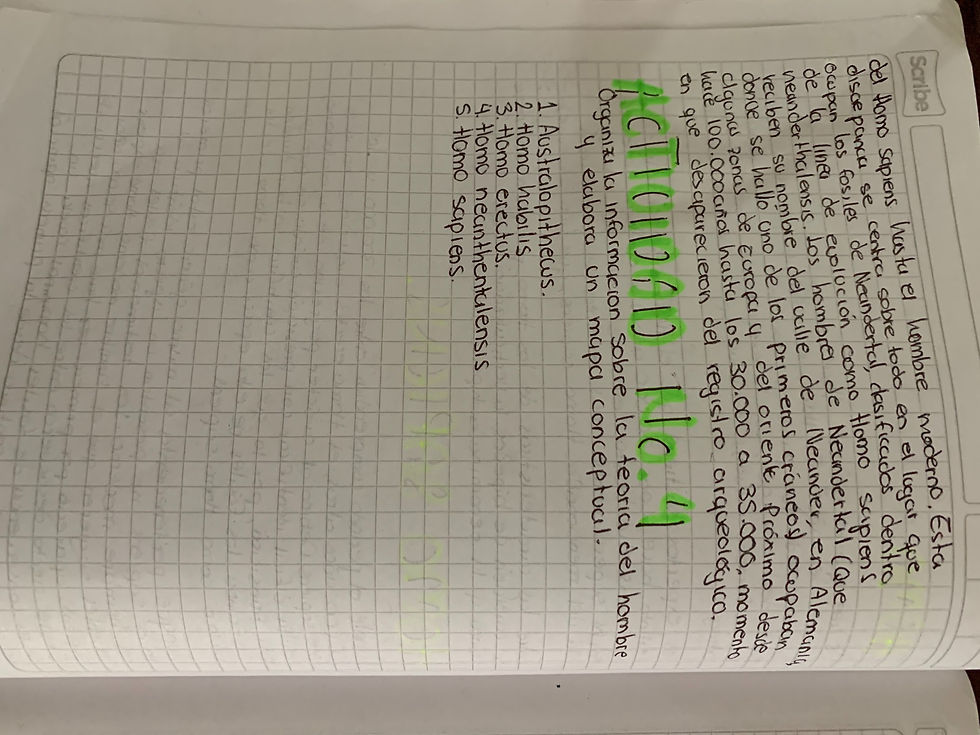 Scribe
del Homo sapiens hasta el hombre moderno. Esta
discepanca se centra sobre todo en el lugar que
ocupan los fosiles de Neandertal, clasificados dentro
de la línea de evolución como Homo sapiens
neanderthalensis. Los hombres de Neandertal (Que
reciben su nombre del valle de Neander, en Alemania,
donde se hallo uno de los primeros cráneos) ocupaban
algunas zonas de europa y del oriente próximo desde
hace 100.000años hasta los 30.000 a 35.000, momento
en que desaparecieron del registro arqueológico.
ACTIVIDAD No. 4
Organiza la informacion sobre la teoria del hombre
y elabora un mapa conceptual.
1. Australopithecus.
2. Homo habilis
3. Homo erectus.
4. Homo neanthentalensis
5. Homo sapiens.